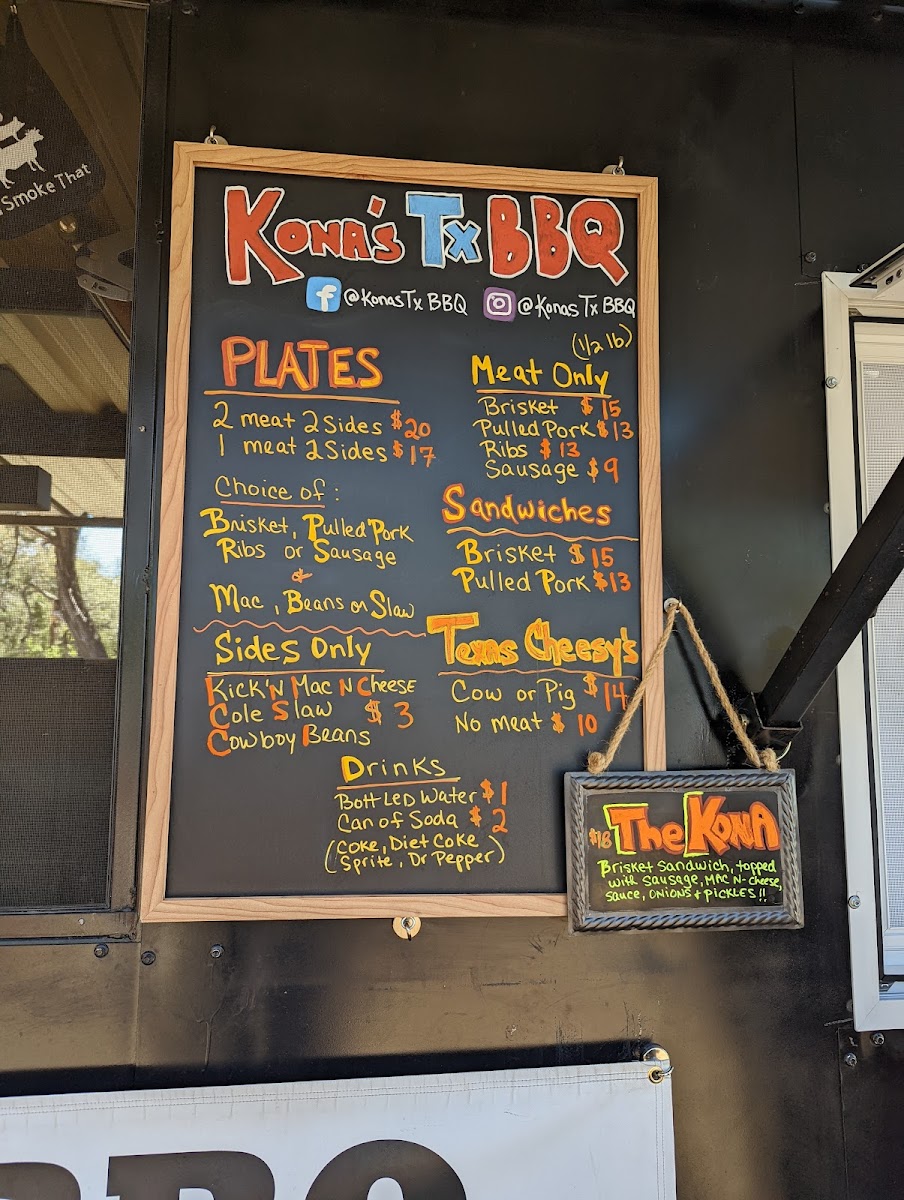 Smoke That
Kona's Tx BBQ
@KonasTxBBQ @KonasTxBBQ
PLATES
2 meat 2 Sides $20
1 meat 2 Sides $17
Choice of:
Brisket, Pulled Pork
Ribs or Sausage
&
Mac, Beans or Slaw
Sides Only
Kick'N Mac N Cheese
Cole Slaw $3
Cowboy Beans
(1/2 lb)
Meat Only
Brisket $15
Pulled Pork $13
Ribs $13
Sausage $9
Sandwiches
Brisket $15
Pulled Pork $13
Texas Cheesy's
Cow or Pig $14
No meat $10
Drinks
BottLED Water $1
Can of Soda $2
(Coke, Diet Coke
Sprite, Dr Pepper)
$18 The KONA
Brisket Sandwich, topped
with Sausage, MAC N-cheese,
sauce, ONIONS + PICKLES!!
BBQ